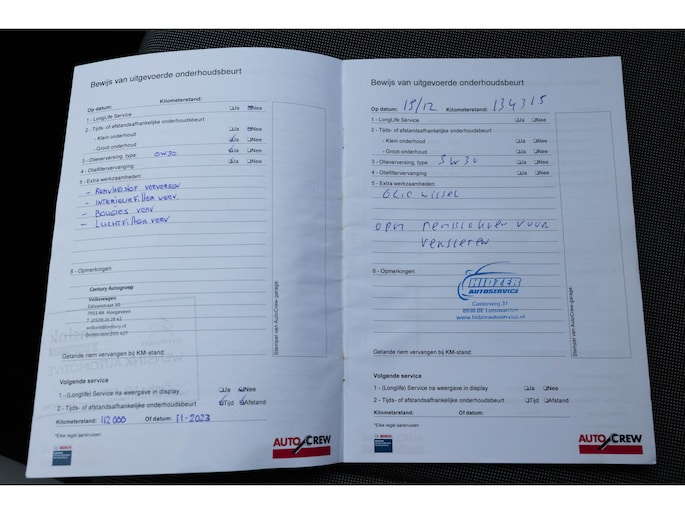 Bewijs van uitgevoerde onderhoudsbeurt
Op datum: Kilometerstand:
1 - LongLife Service Ja Nee
2 - Tijds- of afstandsafhankelijke onderhoudsbeurt Ja Nee
- Klein onderhoud Ja Nee
- Groot onderhoud Ja Nee
3 - Olieverversing, type: 0W30 Ja Nee
4 - Oliefiltervervanging: Ja Nee
5 - Extra werkzaamheden:
- REMVLOEISTOF VERVERSEN
- INTERIEURFILTER VERV.
- BOUGIES VERV
- LUCHTFILTER VERV.
6 - Opmerkingen:
Century Autogroep
Volkswagen
7903 AR Hoogeveen
Stempel van AutoCrew-garage
Getande riem vervangen bij KM-stand:
Volgende service
1 - (Longlife) Service na weergave in display Ja Nee
2 - Tijds- of afstandsafhankelijke onderhoudsbeurt Tijd Afstand
Kilometerstand: 112000 Of datum: 11-2023
*Elke regel aankruisen
BOSCH
AUTO CREW
Bewijs van uitgevoerde onderhoudsbeurt
Op datum: 15/12 Kilometerstand: 134315
1 - LongLife Service Ja Nee
2 - Tijds- of afstandsafhankelijke onderhoudsbeurt
- Klein onderhoud Ja Nee
- Groot onderhoud Ja Nee
3 - Olieverversing, type: 5W30 Ja Nee
4 - Oliefiltervervanging: Ja Nee
5 - Extra werkzaamheden:
Olie wissel
voor
6 - Opmerkingen:
NIDZER
AUTOSERVICE
Castorweg 31
8938 BE Leeuwarden
www.nidzerautoservice.nl
Stempel van AutoCrew-garage
Getande riem vervangen bij KM-stand:
Volgende service
1 - (Longlife) Service na weergave in display Ja Nee
2 - Tijds- of afstandsafhankelijke onderhoudsbeurt Tijd Afstand
Kilometerstand: Of datum:
*Elke regel aankruisen
BOSCH
AUTO CREW